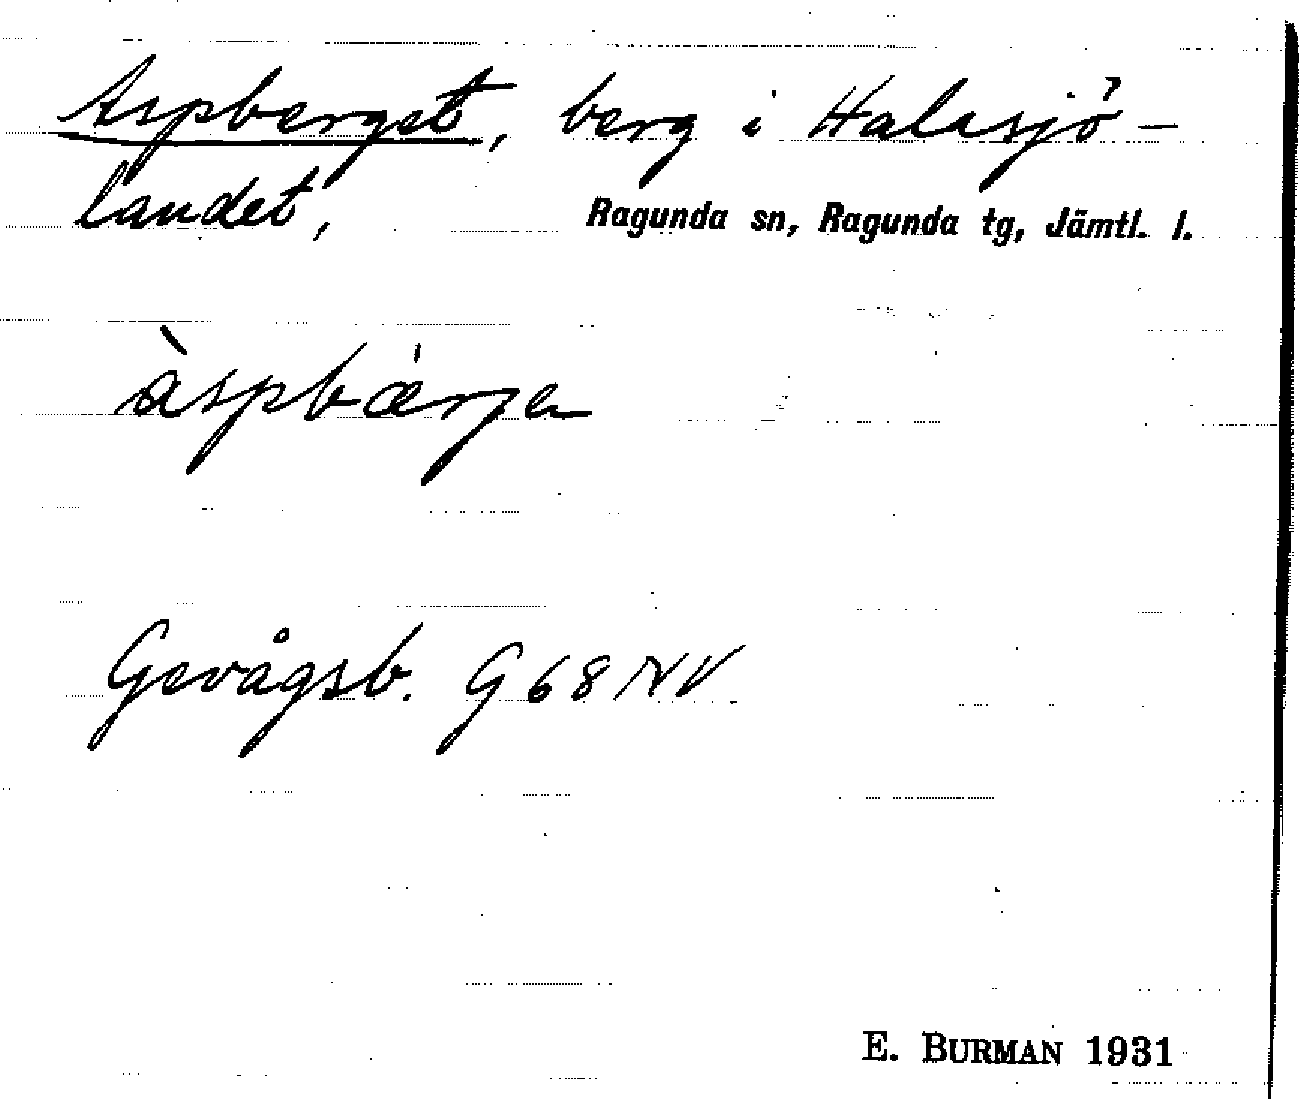 Aspberget, berg i Halasjö-
landet, Ragunda sn, Ragunda tg, Jämtl. l.
àspbæ̀rjen
Gevågsb. G 68 NV
E. BURMAN 1931